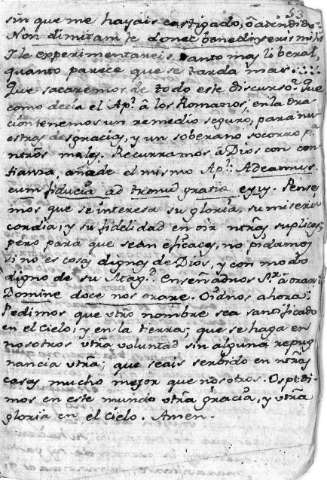 sin que me hayais castigado, o atendido.
Non dimitam te donec benedixeris mihi
I le experimentareis tanto mas liberal,
quanto parece que se tarda mas.
Que sacaremos de todo este discurso? Que
como decia el Ap.l à los Romanos, en la Ora
cion tenemos un remedio seguro, para nu
stras desgracias, y un soberano socorro p.a
ntros males. Recurramos à Dios con con
fianza, añade el mismo Ap.l: Adeamus
cum fiducia ad tronum gratia ejus. Pense
mos que se interesa su gloria, su miseri
cordia, y su fidelidad en oir ntras suplicas,
pero para que seàn eficaces, no pidamos
si no es cosas dignas de Dios, y con modo
digno de su Mag.d Enseñadnos S.r à orar:
Domine doce nos orare. Oidnos ahora:
Pedimos que vtro nombre sea santificado
en el Cielo, y en la tierra; que se haga en
nosotros vtra voluntad sin alguna repug
nancia vtra; que seais servido en ntras
casas mucho mejor que nosotros. Os pedi
mos en este mundo vtra gracia, y vtra
gloria en el Cielo. Amen.